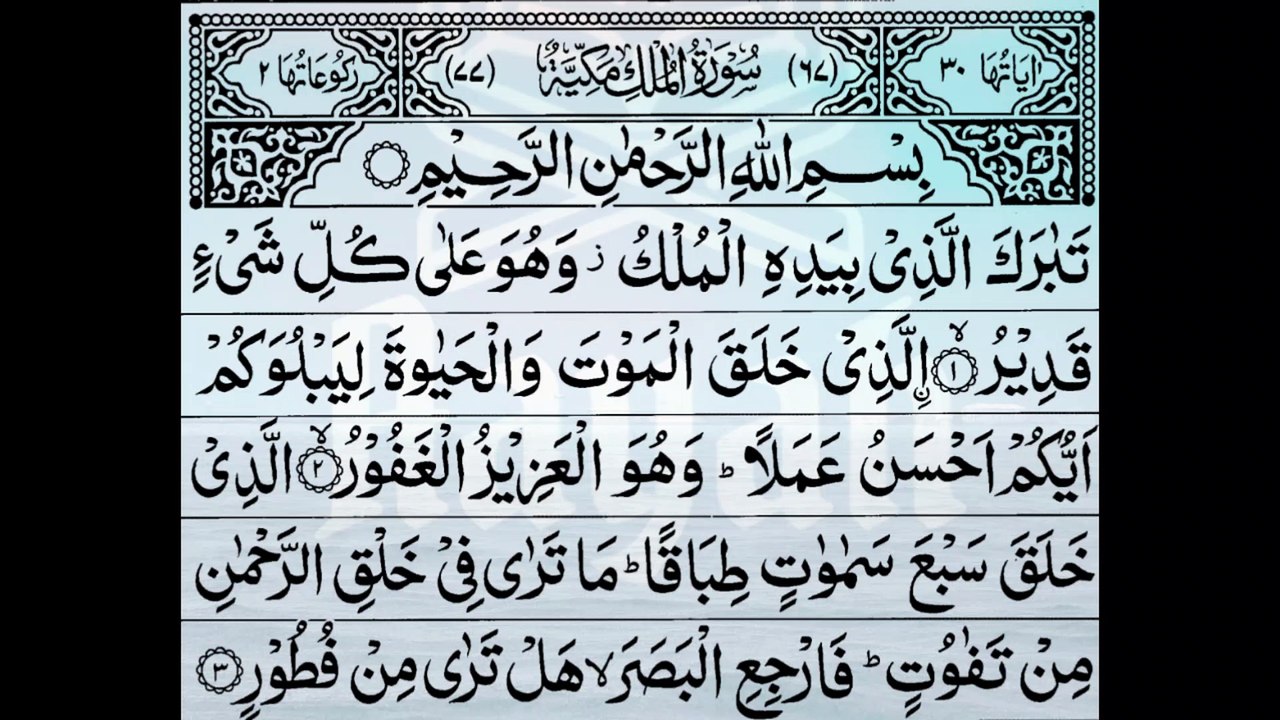 اٰيَاتُهَا ٣٠ (٦٧) سُوْرَةُ الْمُلْكِ مَكِّيَّةٌ (٧٧) رُكُوْعَاتُهَا ٢
بِسْمِ اللّٰهِ الرَّحْمٰنِ الرَّحِيْمِ ۝
تَبٰرَكَ الَّذِىْ بِيَدِهِ الْمُلْكُ ز وَهُوَ عَلٰى كُلِّ شَىْءٍ
قَدِيْرُ ۙ‏﴿١﴾ اۨلَّذِىْ خَلَقَ الْمَوْتَ وَالْحَيٰوةَ لِيَبْلُوَكُمْ
اَيُّكُمْ اَحْسَنُ عَمَلًا ؕ وَهُوَ الْعَزِيْزُ الْغَفُوْرُ ۙ‏﴿٢﴾ الَّذِىْ
خَلَقَ سَبْعَ سَمٰوٰتٍ طِبَاقًا ؕ مَا تَرٰى فِىْ خَلْقِ الرَّحْمٰنِ
مِنْ تَفٰوُتٍ ؕ فَارْجِعِ الْبَصَرَ ۙ هَلْ تَرٰى مِنْ فُطُوْرٍ ‏﴿٣﴾